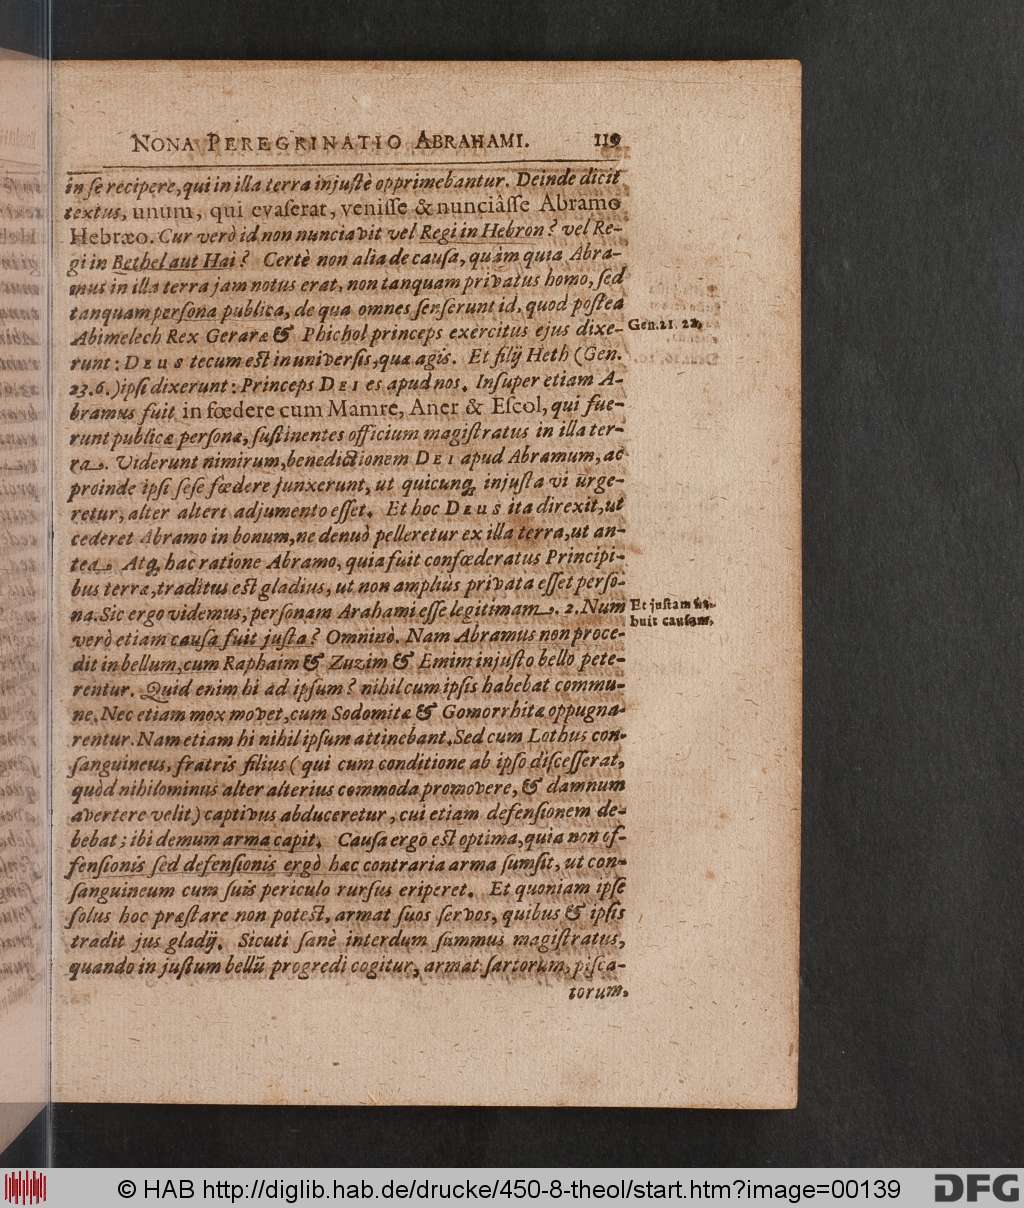 NONA PEREGRINATIO ABRAHAMI. 119
in ſe recipere, qui in illa terra injuſtè opprimebantur. Deinde dicit
textus, unum, qui evaſerat, veniſſe & nunciâſſe Abramo
Hebræo. Cur verò id non nunciavit vel Regi in Hebron? vel Re-
gi in Bethel aut Hai? Certè non alia de cauſa, quàm quia Abra-
mus in illa terra jam notus erat, non tanquam privatus homo, ſed
tanquam perſona publica, de qua omnes ſenſerunt id, quod poſtea
Abimelech Rex Geraræ & Phichol princeps exercitus ejus dixe-
Gen. 21. 22.
runt: DEUS tecum eſt in univerſis, quæ agis. Et filij Heth (Gen.
23.6.) ipſi dixerunt: Princeps DEI es apud nos. Inſuper etiam A-
bramus fuit in fœdere cum Mamre, Aner & Eſcol, qui fue-
runt publicæ perſonæ, ſuſtinentes officium magiſtratus in illa ter-
ra. Viderunt nimirum, benedictionem DEI apud Abramum, ac
proinde ipſi ſeſe fœdere junxerunt, ut quicunq; injuſta vi urge-
retur, alter alteri adjumento eſſet. Et hoc DEUS ita direxit, ut
cederet Abramo in bonum, ne denuò pelleretur ex illa terra, ut an-
tea. Atq; hac ratione Abramo, quia fuit confœderatus Principi-
bus terræ, traditus eſt gladius, ut non ampliùs privata eſſet perſo-
na. Sic ergo videmus, perſonam Arahami eſſe legitimam. 2. Num
Et juſtam ha-
buit cauſam.
verò etiam cauſa fuit juſta? Omninò. Nam Abramus non proce-
dit in bellum, cum Raphaim & Zuzim & Emim injuſto bello pete-
rentur. Quid enim hi ad ipſum? nihil cum ipſis habebat commu-
ne. Nec etiam mox movet, cum Sodomitæ & Gomorrhitæ oppugna-
rentur. Nam etiam hi nihil ipſum attinebant. Sed cum Lothus con-
ſanguineus, fratris filius (qui cum conditione ab ipſo diſceſſerat,
quòd nihilominus alter alterius commoda promovere, & damnum
avertere velit) captivus abduceretur, cui etiam defenſionem de-
bebat; ibi demum arma capit. Cauſa ergo eſt optima, quia non of-
fenſionis ſed defenſionis ergò hæc contraria arma ſumſit, ut con-
ſanguineum cum ſuis periculo rurſus eriperet. Et quoniam ipſe
ſolus hoc præſtare non poteſt, armat ſuos ſervos, quibus & ipſis
tradit jus gladij. Sicuti ſanè interdum ſummus magiſtratus,
quando in juſtum bellũ progredi cogitur, armat ſartorum, piſca-
torum,
© HAB http://diglib.hab.de/drucke/450-8-theol/start.htm?image=00139
DFG